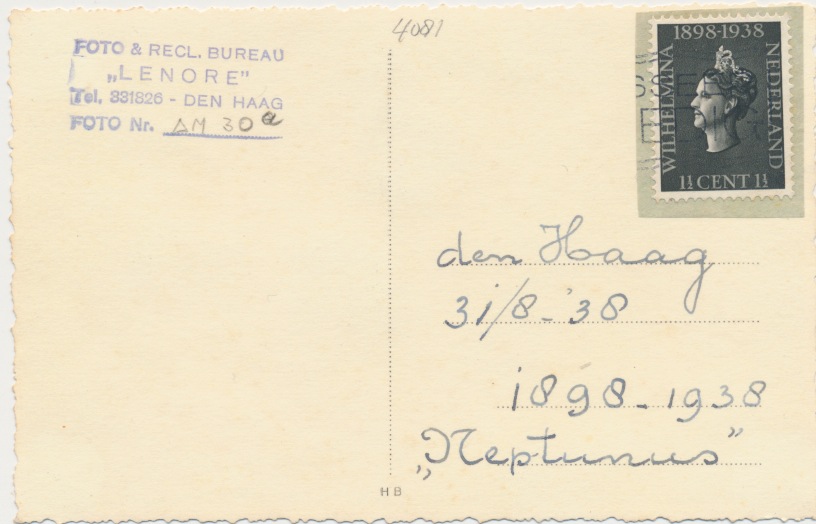 4081
FOTO & RECL. BUREAU
„LENORE”
Tel. 331826 - DEN HAAG
FOTO Nr. AM 30a
1898-1938
WILHELMINA
NEDERLAND
1½ CENT 1½
den Haag
31/8-'38
1898-1938
„Neptunus”
HB